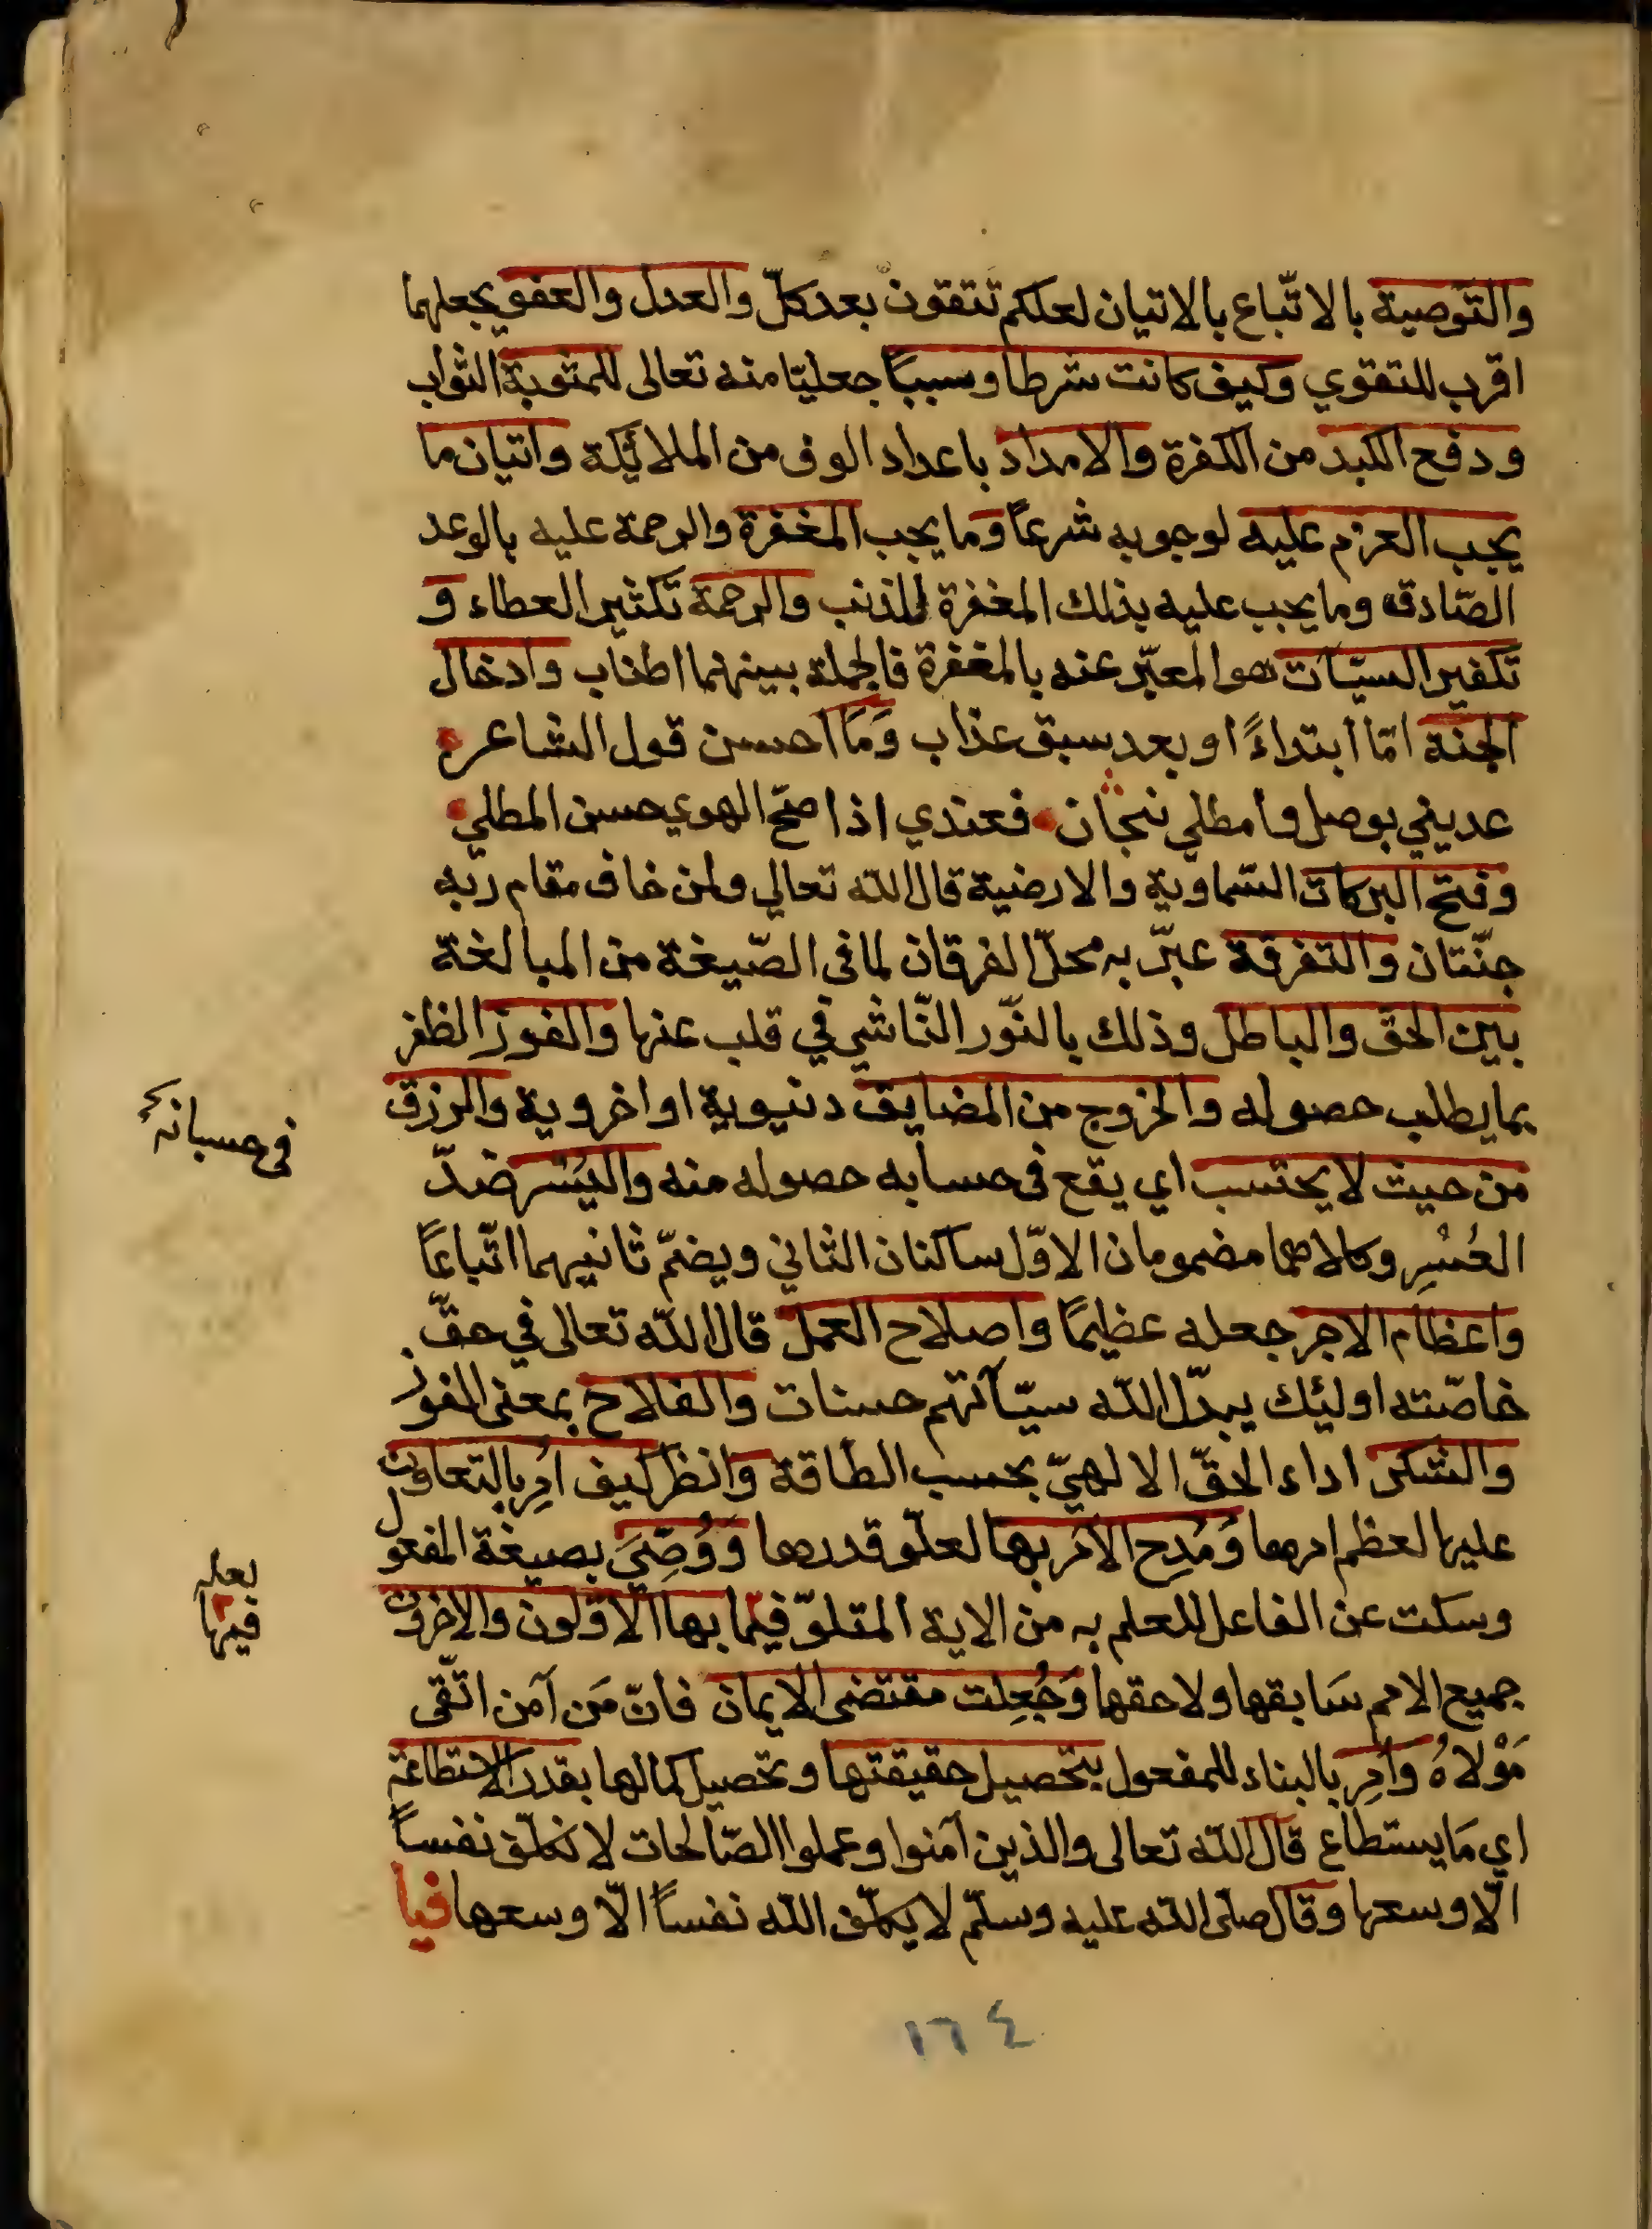 والتوصية بالاتّباع بالاتيان لعلكم تتقون بعد كلّ والعدل والعفو يجعلهما
اقرب للتقوي وكيف كانت شرطا وسببًا جعليّا منه تعالى للمثوبة الثواب
ودفع الكيد من الكفرة والامداد باعداد الوف من الملائيكة واتيان ما
يجب العزم عليه لوجوبه شرعًا وما يجب المغفرة والرحمة عليه بالوعد
الصّادق وما يجب عليه بذلك المغفرة للذنب والرحمة تكثير العطاء و
تكفير السيّآت هو المعبّر عنه بالمغفرة فالجملة بينهما اطناب وادخال
الجنة امّا ابتداءً او بعد سبق عذاب وَمَا احسن قول الشاعر
عديني بوصل وامطلي نجّان فعندي اذا صحّ الهوي حسن المطلي
وفتح البركات السّماوية والارضية قال الله تعالي ولمن خاف مقام ربّه
جنّتان والتفرقة عبّر به محلّ الفرقان لما في الصّيغة من المبالغة
بين الحق والباطل وذلك بالنّور النّاشي في قلب عنها والفوز الظفر
بما يطلب حصوله والخروج من المضايق دنيوية او اخروية والرزق
من حيث لا يحتسب اي يقع في حسابه حصوله منه واليُسْر ضدّ
العُسْرِ وكلاهما مضمومان الاوّل ساكنان الثاني ويضمّ ثانيهما اتّباعًا
واعظام الاجر جعله عظيمًا واصلاح العمل قال الله تعالى في حقّ
خاصّته اوليئك يبدّل الله سيّآتهم حسنات والفلاح بمعنى الفوز
والشكر اداء الحقّ الالهيّ بحسب الطاقة وانظر كيف اُمِر بالتعاون
عليها لعظم امرها وَمُدِح الآمر بها لعلّو قدرها وَوُصِّيَ بصيغة المفعول
وسكت عن الفاعل للعلم به من الاية المتلوّ فيها بها الاوّلون والاخرون
جميع الامم سَابقها ولاحقها وَجُعِلت مقتضى الايمان فانّ مَن آمن اتّقى
مَوْلاهُ واُمِر بالبناء للمفعول بتحصيل حقيقتها وتحصيل كمالها بقدر الاستطاعة
اي مَا يستطاع قال الله تعالى والذين آمنوا وعملوا الصّالحات لا نكلّف نفساً
الّا وسعها وقال صلّى الله عليه وسلّم لا يكلّف الله نفساً الّا وسعها فيا
في حسبانه
لعله
فيها
١٦٤